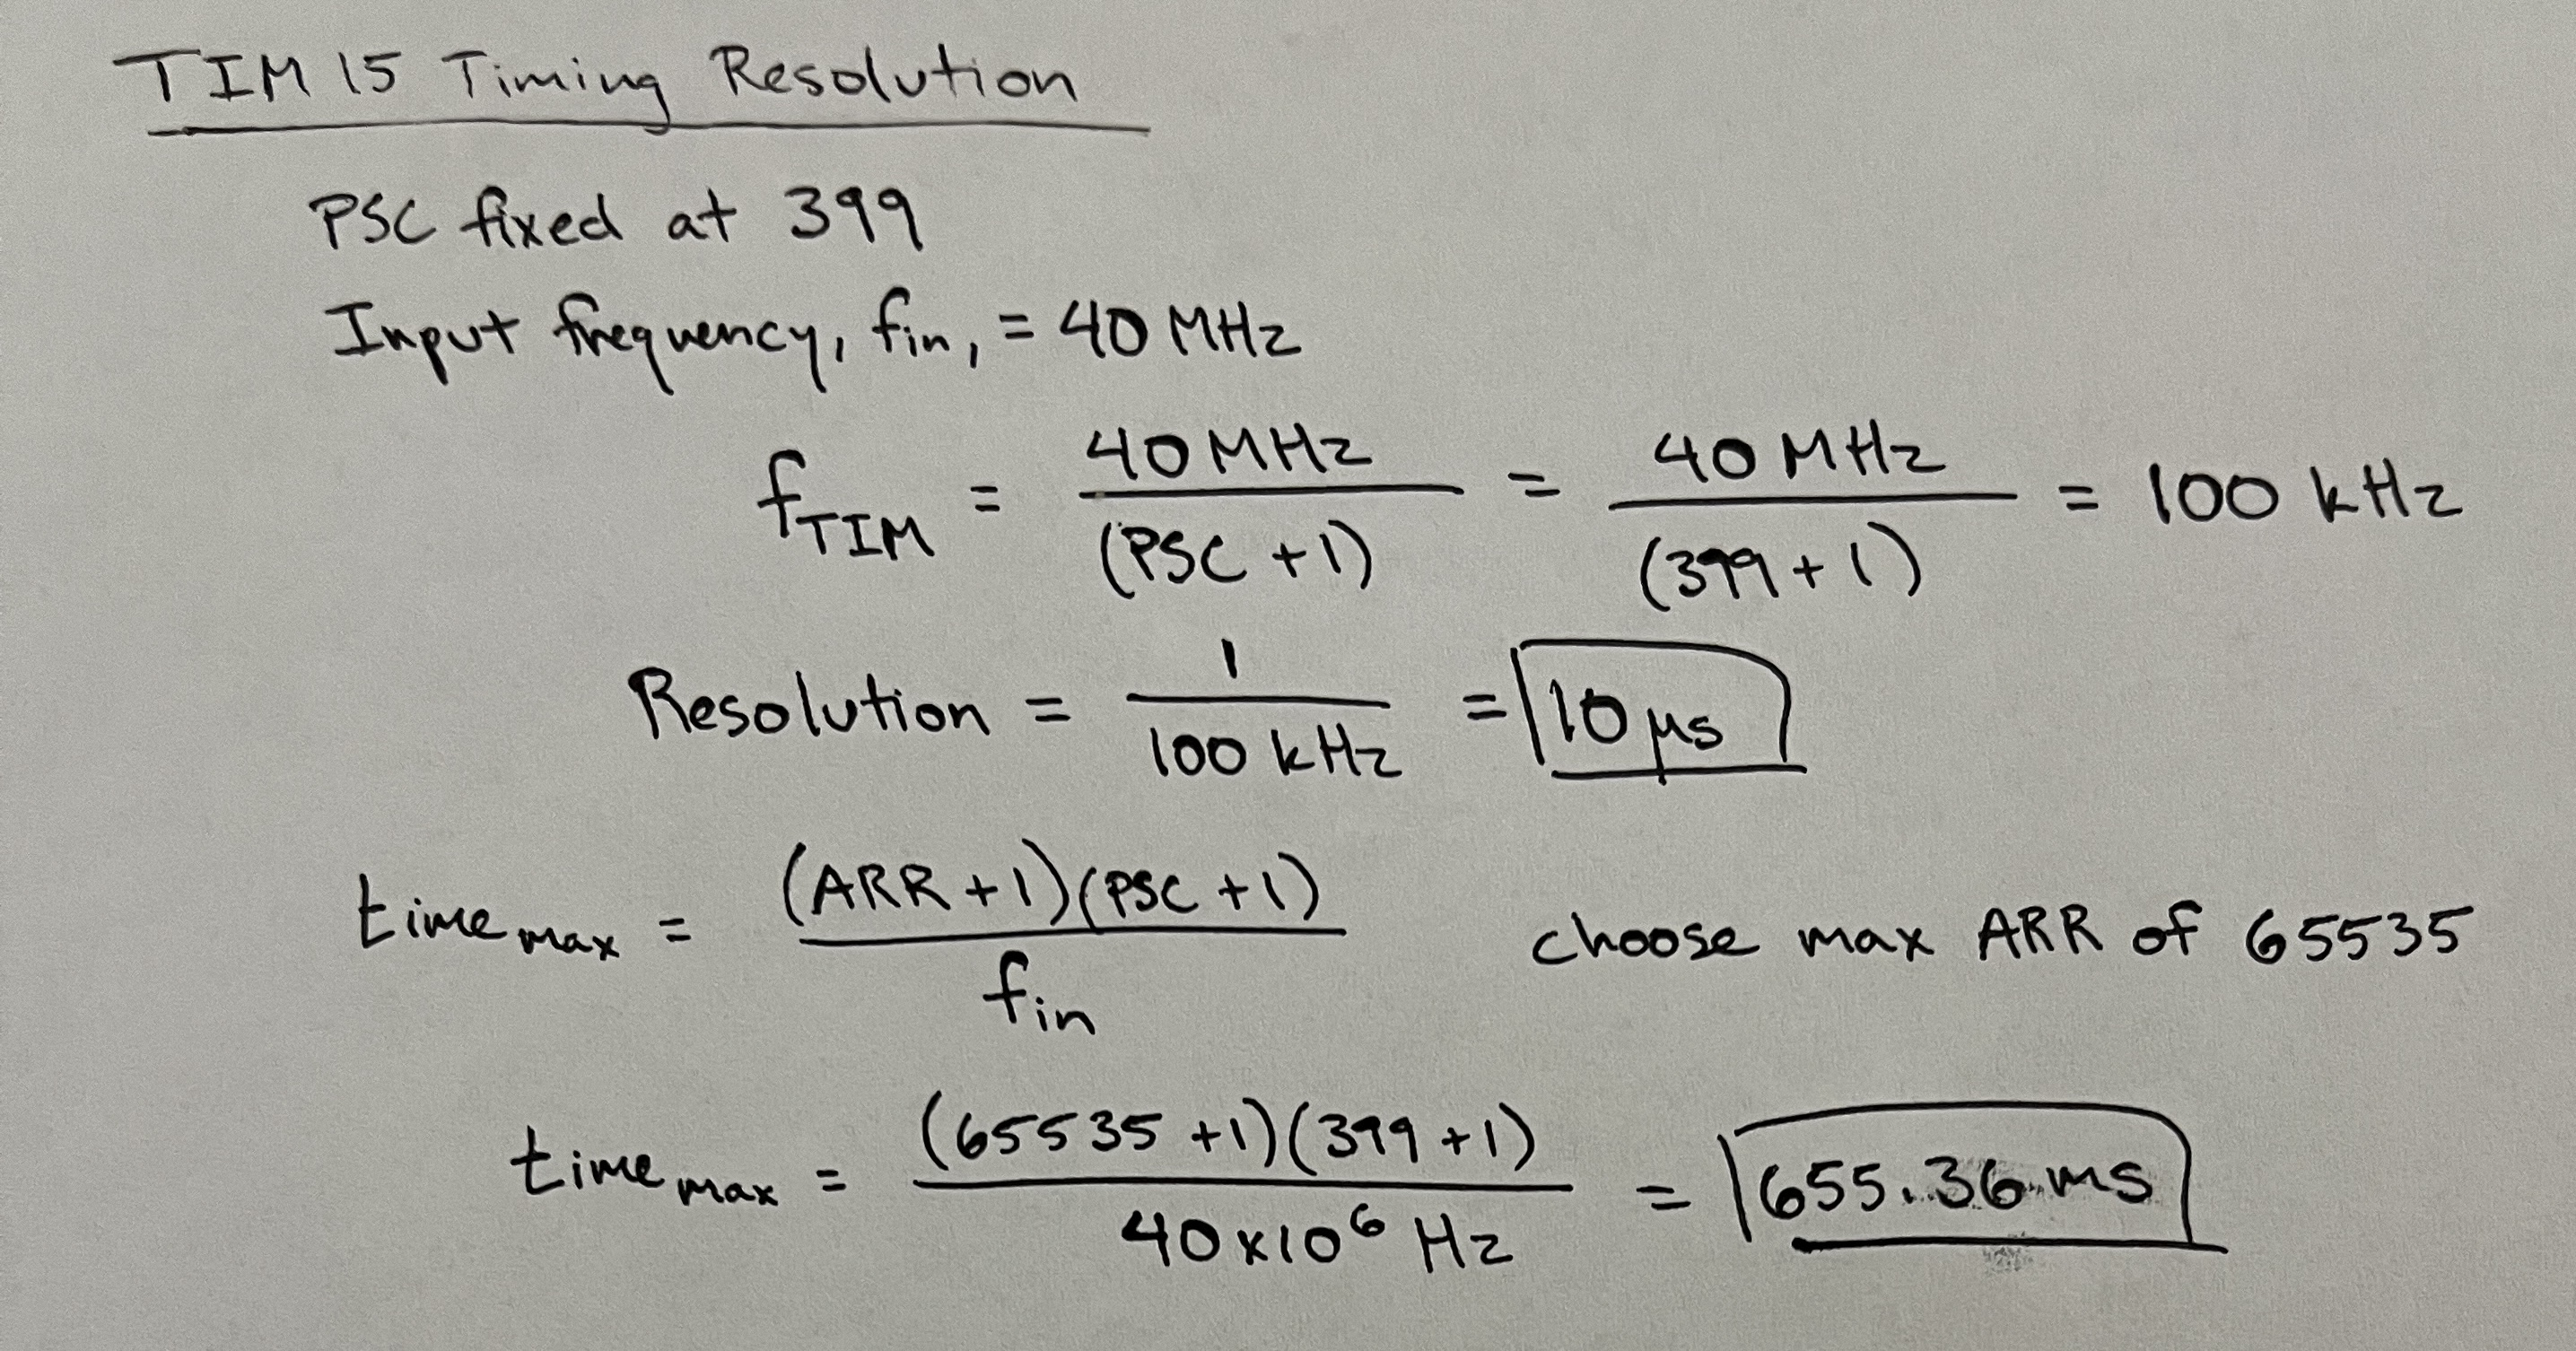 TIM 15 Timing Resolution
PSC fixed at 399
Input frequency, fin, = 40 MHz
f_TIM = 40 MHz / (PSC + 1) = 40 MHz / (399 + 1) = 100 kHz
Resolution = 1 / 100 kHz = 10 μs
time_max = (ARR + 1)(PSC + 1) / fin choose max ARR of 65535
time_max = (65535 + 1)(399 + 1) / 40 x 10^6 Hz = 655.36 ms